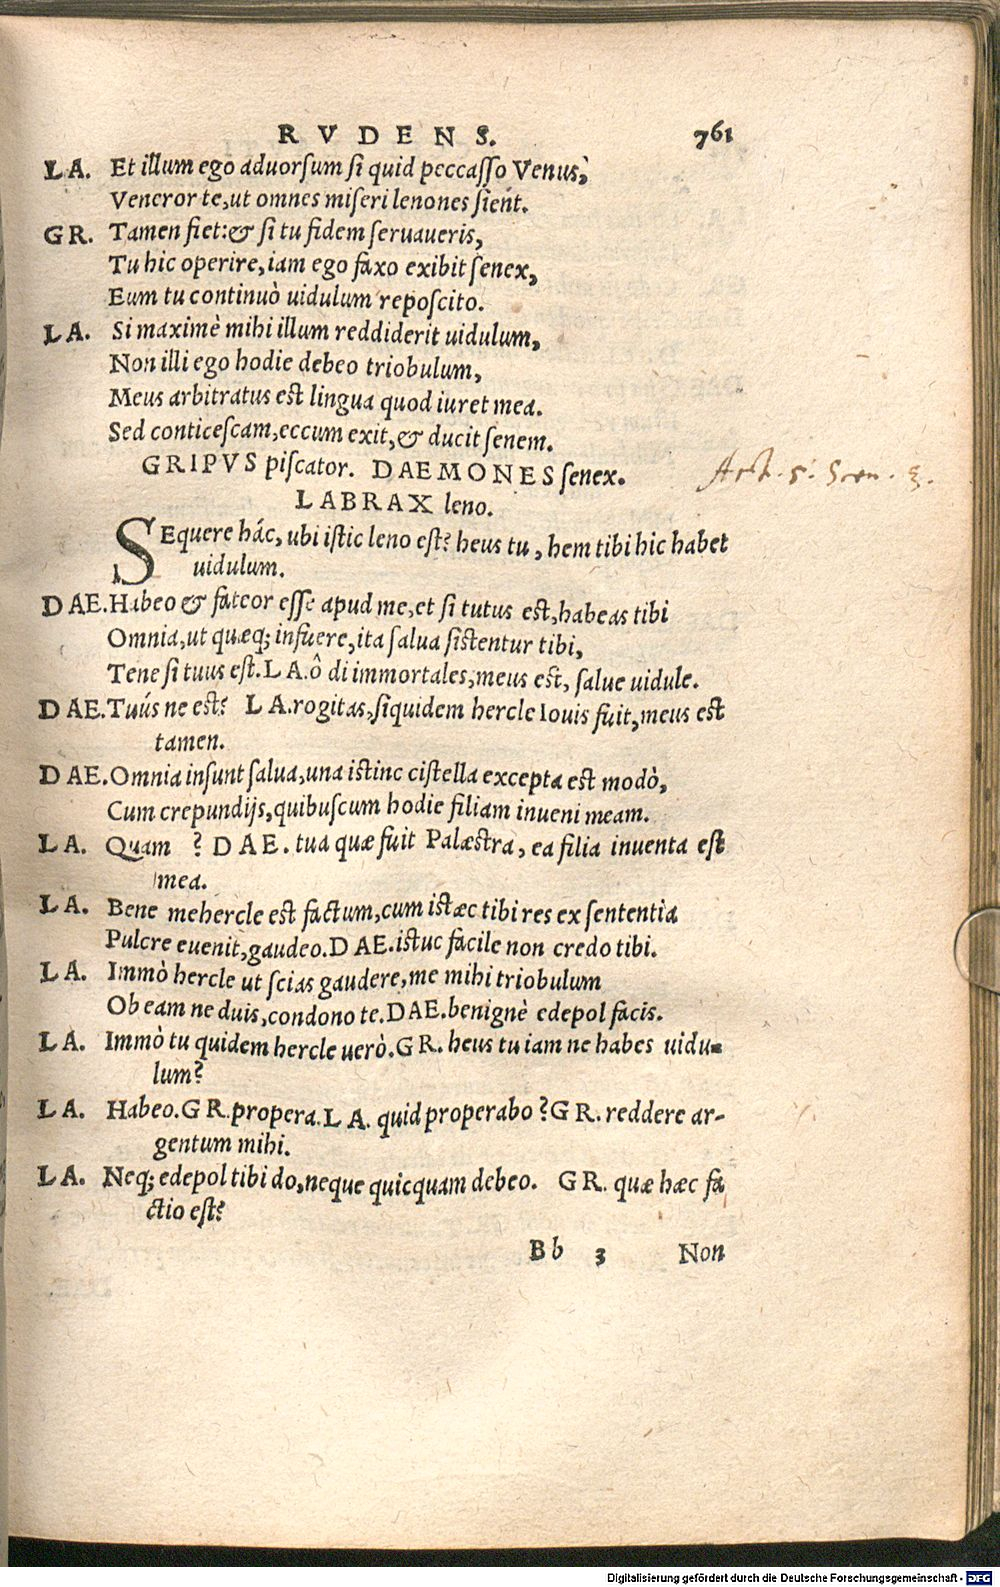 RVDENS. 761
LA. Et illum ego aduorsum si quid peccasso Venus,
Veneror te, ut omnes miseri lenones sient.
GR. Tamen fiet: & si tu fidem seruaueris,
Tu hic operire, iam ego faxo exibit senex,
Eum tu continuò uidulum reposcito.
LA. Si maximè mihi illum reddiderit uidulum,
Non illi ego hodie debeo triobulum,
Meus arbitratus est lingua quod iuret mea.
Sed conticescam, eccum exit, & ducit senem.
GRIPVS piscator. DAEMONES senex.
Act. 5. Scen. 3.
LABRAX leno.
SEquere hác, ubi istic leno est? heus tu, hem tibi hic habet
uidulum.
DAE. Habeo & fateor esse apud me, et si tutus est, habeas tibi
Omnia, ut quæq; infuere, ita salua sistentur tibi,
Tene si tuus est. LA. ô di immortales, meus est, salue uidule.
DAE. Tuús ne est? LA. rogitas, siquidem hercle Iouis fuit, meus est
tamen.
DAE. Omnia insunt salua, una istinc cistella excepta est modò,
Cum crepundijs, quibuscum hodie filiam inueni meam.
LA. Quam? DAE. tua quæ fuit Palæstra, ea filia inuenta est
mea.
LA. Bene mehercle est factum, cum istæc tibi res ex sententia
Pulcre euenit, gaudeo. DAE. istuc facile non credo tibi.
LA. Immò hercle ut scias gaudere, me mihi triobulum
Ob eam ne duis, condono te. DAE. benignè edepol facis.
LA. Immò tu quidem hercle uerò. GR. heus tu iam ne habes uidu-
lum?
LA. Habeo. GR. propera. LA. quid properabo? GR. reddere ar-
gentum mihi.
LA. Neq; edepol tibi do, neque quicquam debeo. GR. quæ hæc fa
ctio est?
Bb 3 Non
Digitalisierung gefördert durch die Deutsche Forschungsgemeinschaft - DFG